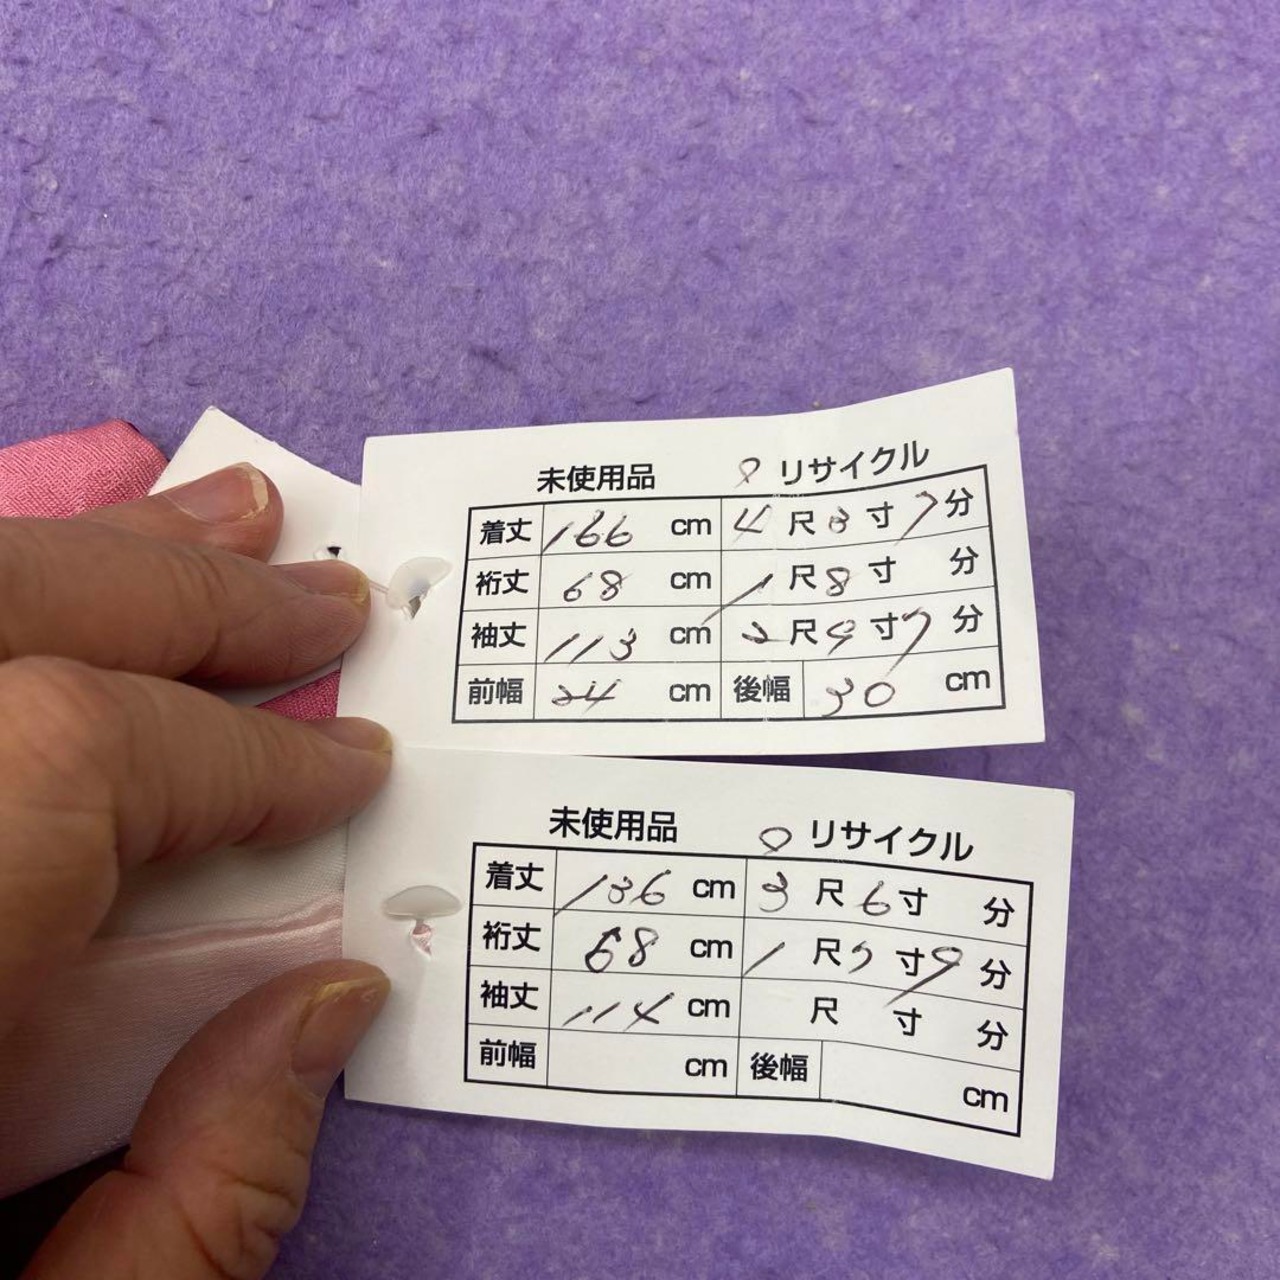 未使用品 リサイクル
着丈 166 cm 4 尺 3 寸 7 分
裄丈 68 cm 1 尺 8 寸 分
袖丈 113 cm 2 尺 9 寸 7 分
前幅 24 cm 後幅 30 cm
未使用品 リサイクル
着丈 136 cm 3 尺 6 寸 分
裄丈 68 cm 1 尺 7 寸 9 分
袖丈 114 cm 尺 寸 分
前幅 cm 後幅 cm